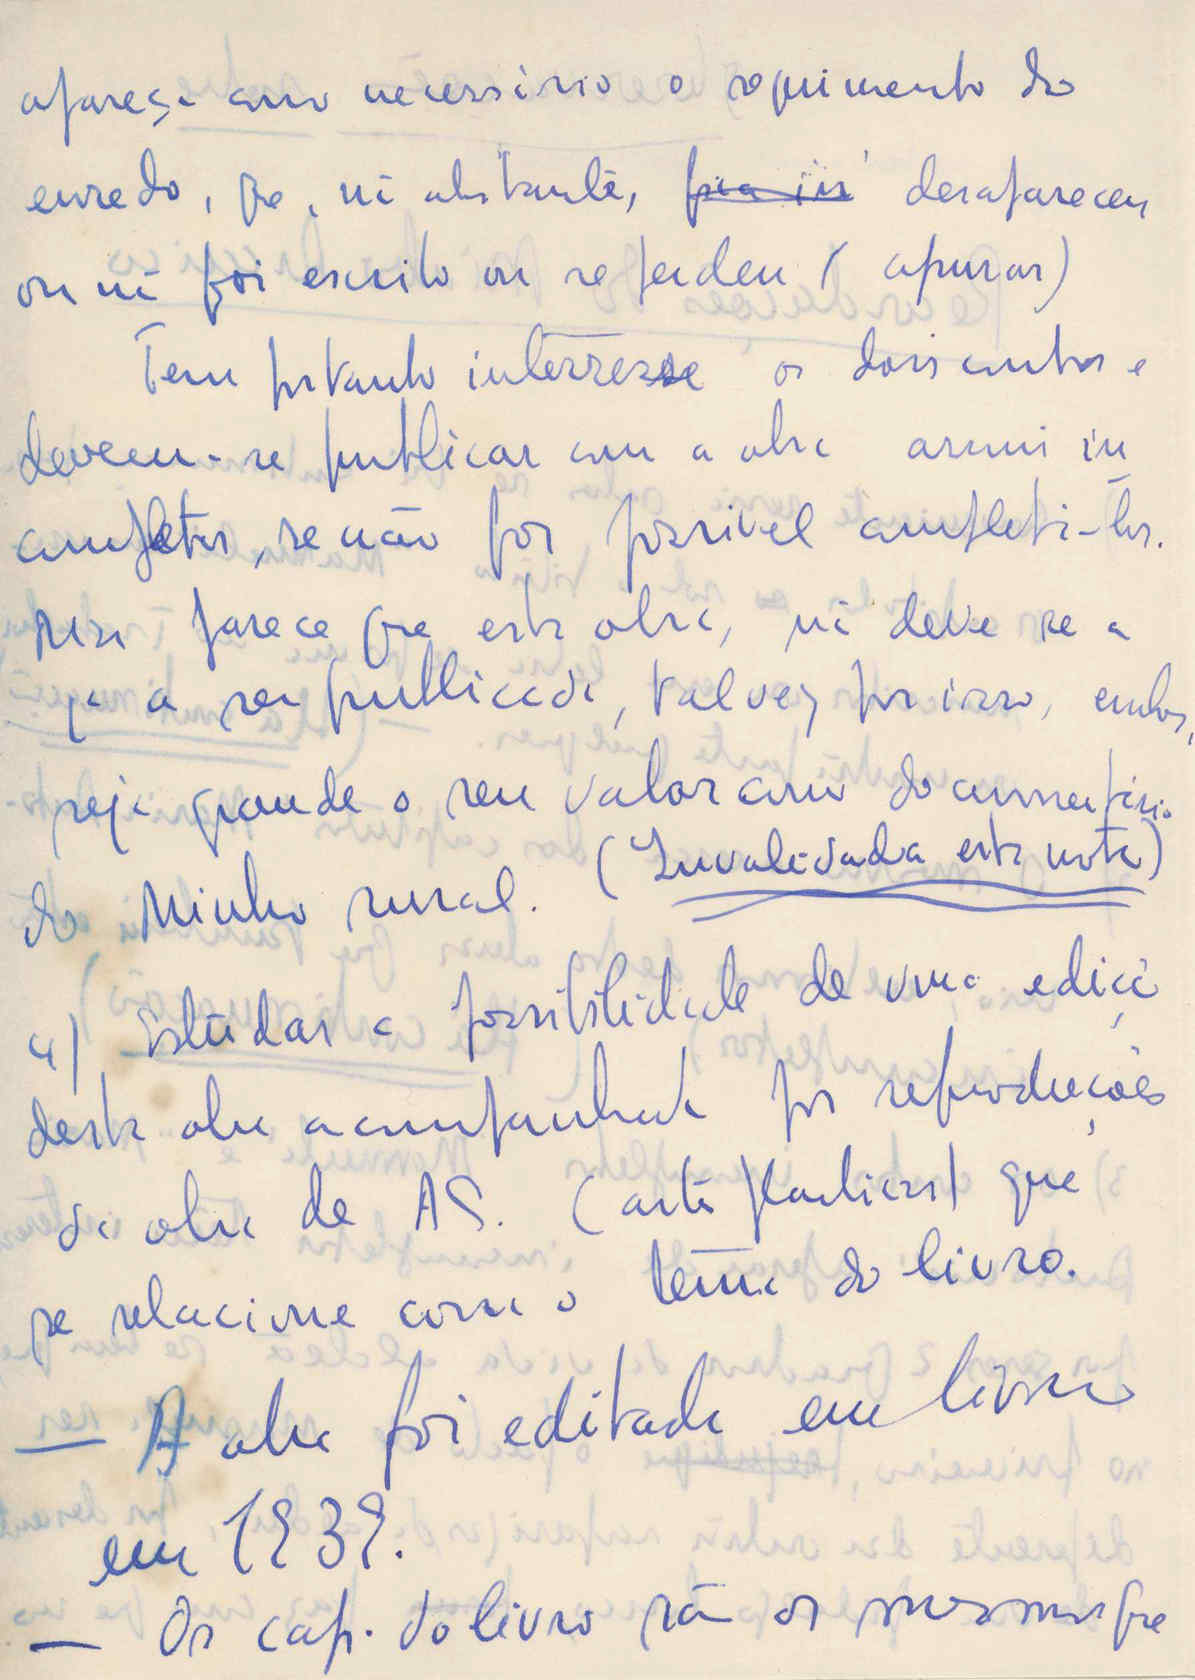 apareça como necessário o seguimento do
enredo, que, nã obstante, desapareceu
ou nã foi escrito ou se perdeu (apurar)
Tem portanto interresse os dois contos e
devem-se publicar com a obra assim in
completos, se não for possivel completá-los.
Mas parece que esta obra, nã deve se a
a ser publicada, talvez por isso, embora
seja grande o seu valor como documentário
do Minho rural. (Invalidada esta nota)
4) Estudar a possibilidade de uma ediçã
desta obra acompanhada por reproduções
da obra de AS. (arte plasticas) que
se relacione com o tema do livro.
— A obra foi editada em livro
em 1939.
— Os cap. do livro sã os mesmos que